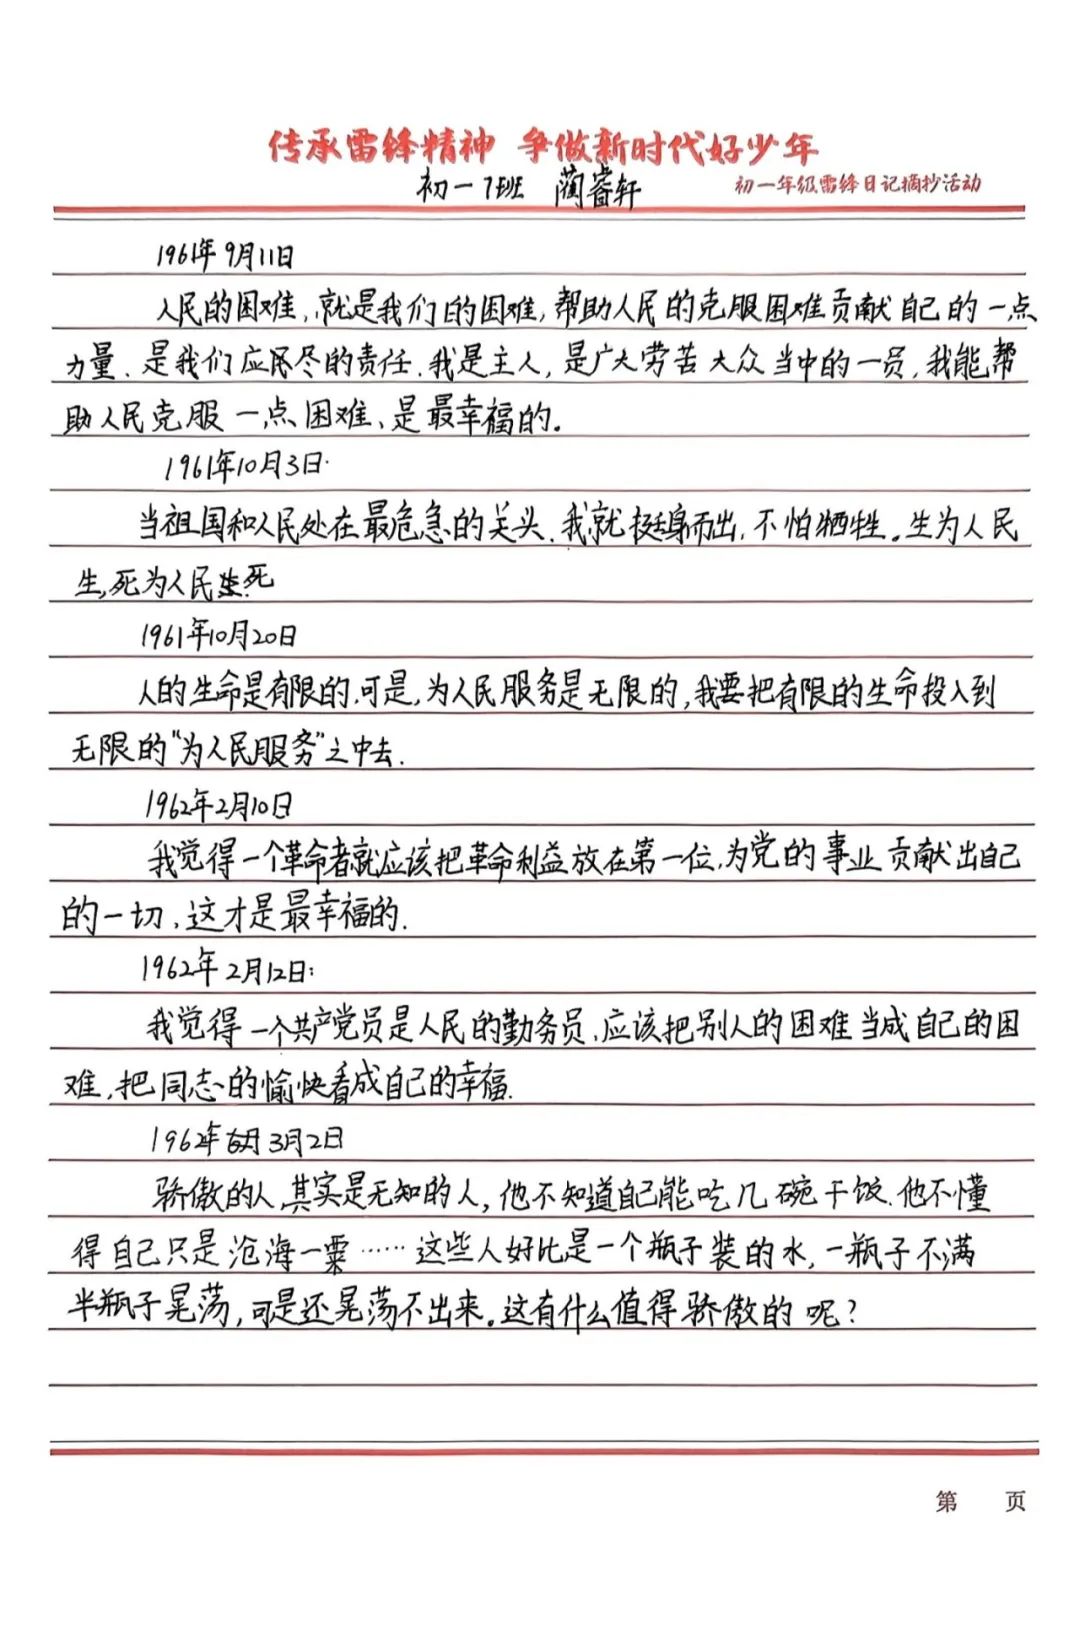 传承雷锋精神 争做新时代好少年
初一7班 蔺睿轩 初一年级雷锋日记摘抄活动
1961年9月11日
人民的困难,就是我们的困难,帮助人民的克服困难贡献自己的一点
力量、是我们应尽的责任.我是主人,是广大劳苦大众当中的一员,我能帮
助人民克服一点困难、是最幸福的。
1961年10月3日.
当祖国和人民处在最危急的关头.我就挺身而出,不怕牺牲。生为人民
生,死为人民死
1961年10月20日
人的生命是有限的.可是,为人民服务是无限的,我要把有限的生命投入到
无限的“为人民服务”之中去.
1962年2月10日
我觉得一个革命者就应该把革命利益放在第一位,为党的事业贡献出自己
的一切、这才是最幸福的.
1962年2月12日:
我觉得一个共产党员是人民的勤务员、应该把别人的困难当成自己的困
难,把同志的愉快看成自己的幸福.
1962年3月2日
骄傲的人,其实是无知的人,他不知道自己能吃几碗干饭.他不懂
得自己只是沧海一粟……这些人好比是一个瓶子装的水,一瓶子不满
半瓶子晃荡,可是还晃荡不出来。这有什么值得骄傲的呢?
第 页